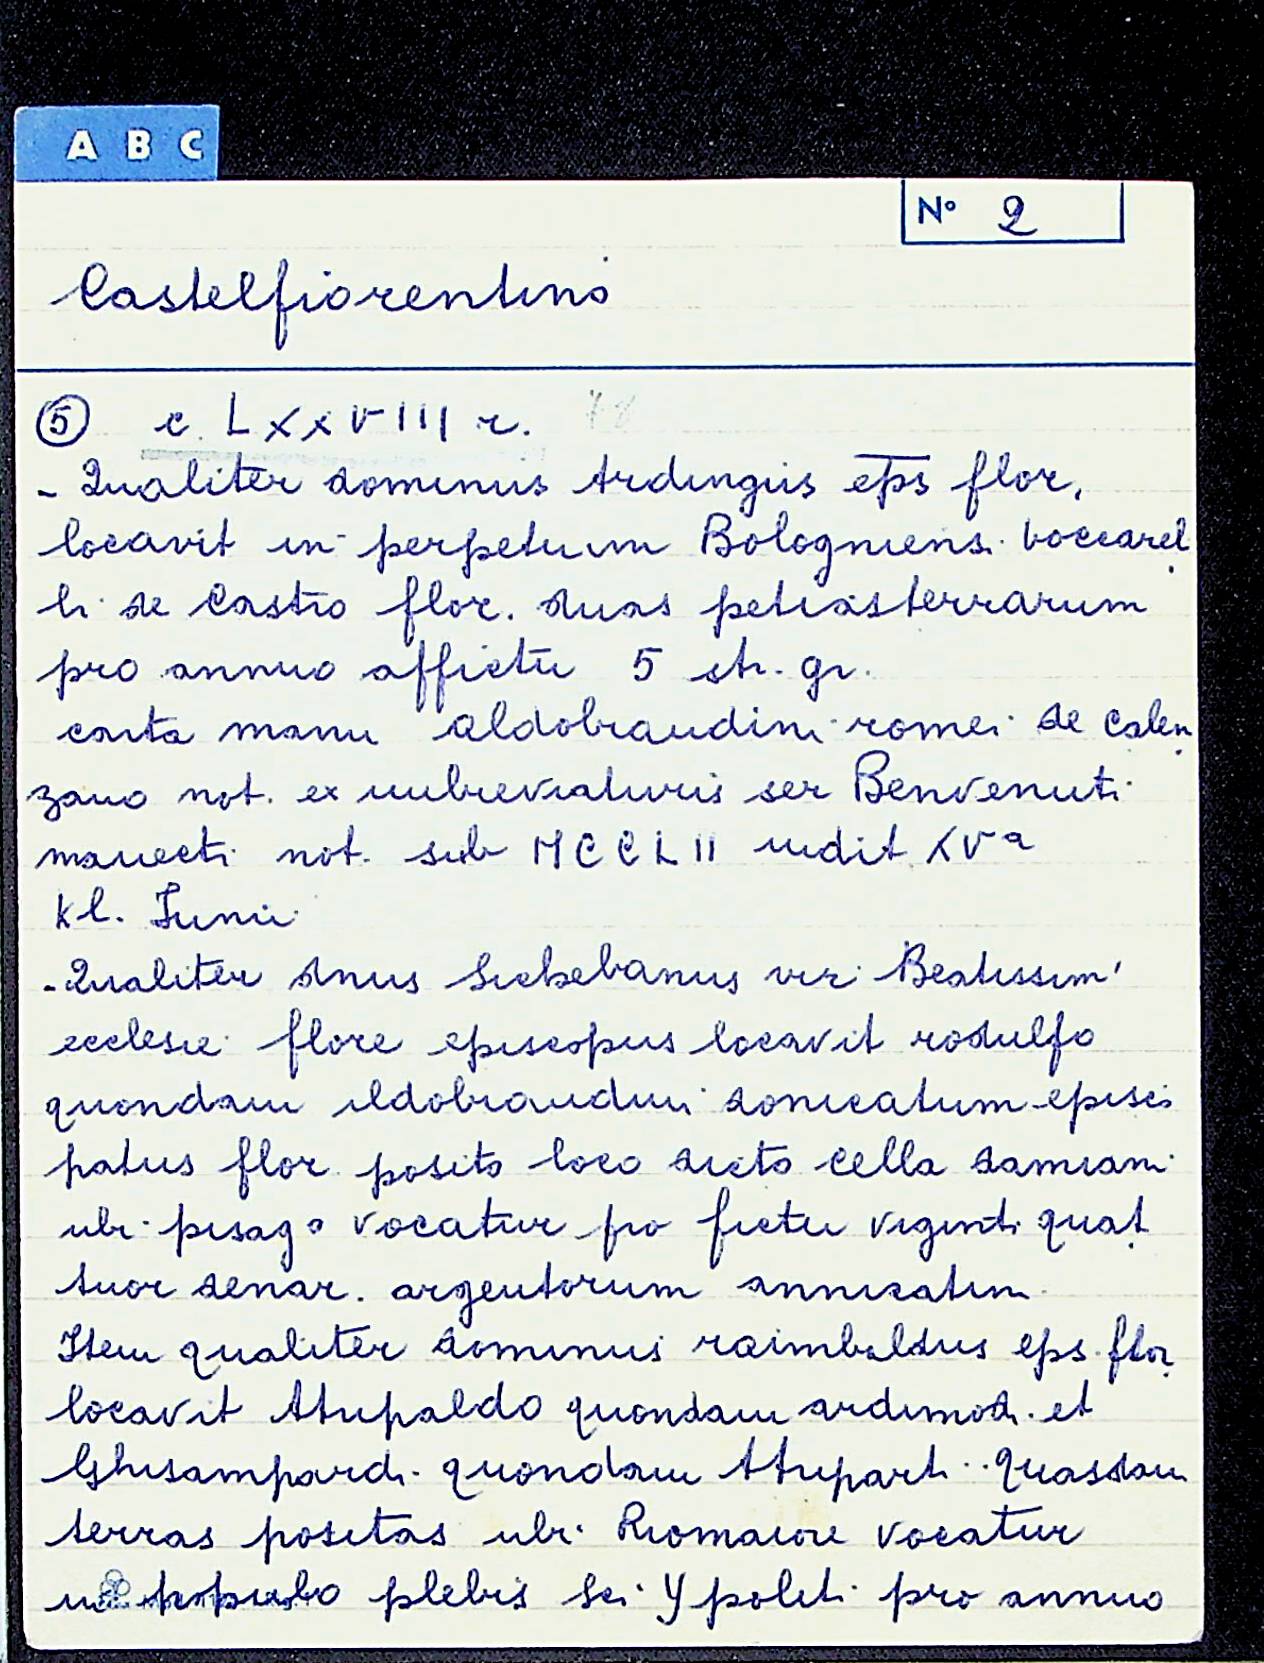 A B C
N° 2
Castelfiorentino
5 c. LXXVIII r. 78
- Qualiter dominus Ardingus eps flor.
locavit in perpetuum Bologniens. boccarel
li de Castro flor. duas petias terrarum
pro annuo affictu 5 st. gr.
carta manu aldobrandini romei de Calen
zano not. ex imbreviaturis ser Benvenuti
manecti not. sub MCCLII indit XVª
kl. Junii
- Qualiter dnus vir Beatissim'
ecclesie flore episcopus locavit rodulfo
quondam ildobrandini donicatum episco
patus flor. posito loco dicto cella damiani
ubi pisago vocatur pro fictu viginti quat
tuor denar. argentorum annuatim
Item qualiter dominus raimbaldus eps. flor
locavit quondam et
quondam quasdam
terras positas ubi Riomaiore vocatur
in populo plebis Sci Ypoliti pro annuo